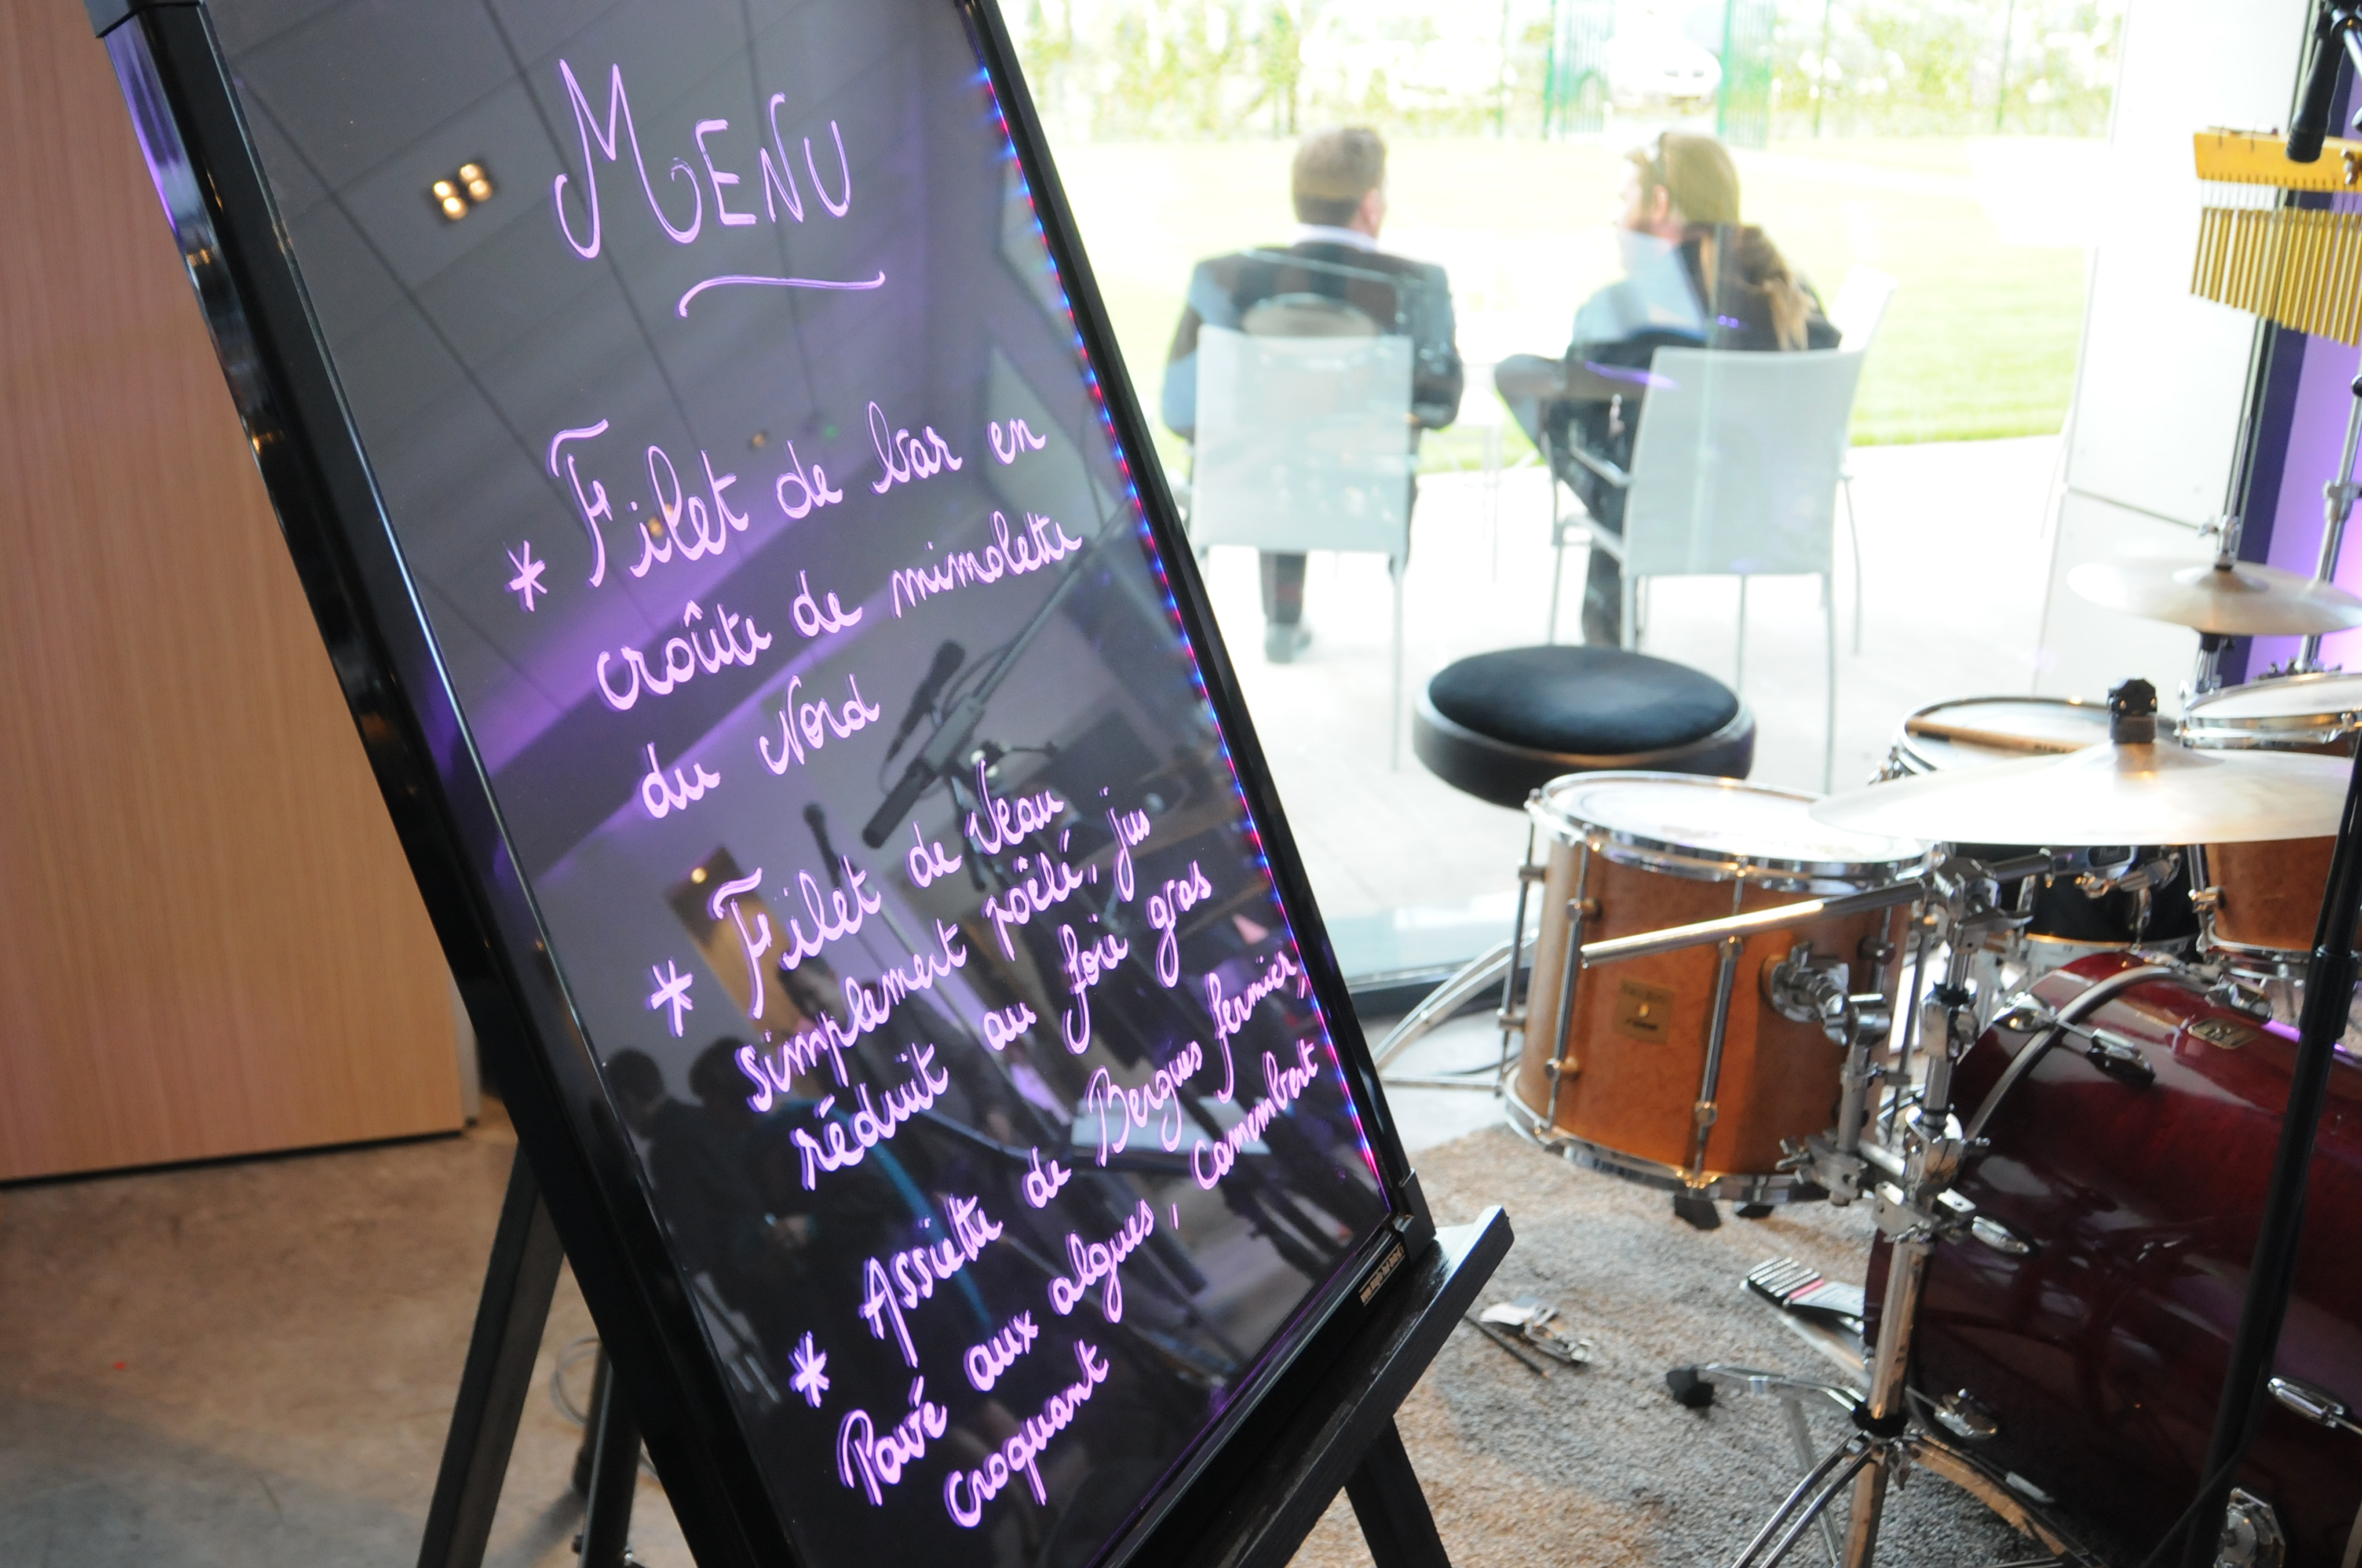 MENU
* Filet de bar en
croûte de mimolette
du Nord
* Filet de Veau
simplement poêlé, jus
réduit au foie gras
* Assiette de Bergues fermier,
Pavé aux algues, Camembert
croquant